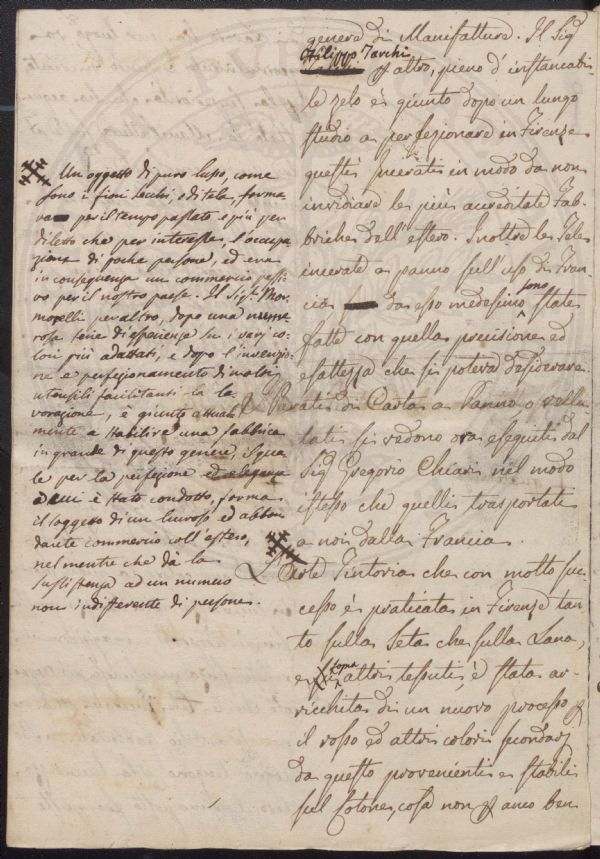 genere di Manifatture. Il Sig
Filippo Tarchi
altro, pieno d'instancabi-
le zelo è giunto dopo un lungo
studio a perfezionare in Firenze
questi Incerati in modo da non
invidiare le più accreditate Fab-
briche dell'estero. Inoltre le Tele
incerate a panno sull'uso di Fran-
cia da esso medesimo sono state
fatte con quella precisione ed
esattezza che si poteva desiderare.
I Parati di Carta a Panno o vellu-
tati si vedono ora eseguiti dal
Sig Gregorio Chiari nel modo
istesso che quelli trasportati
a noi dalla Francia.
L'Arte Tintoria che con molto suc-
cesso è praticata in Firenze tan-
to sulla Seta che sulla Lana,
e sopra altri tessuti, è stata ar-
ricchita di un nuovo processo
il rosso ed altri colori secondarj
da questo provenienti e stabili
sul Cotone, cosa non anco ben
Un oggetto di puro lusso, come
sono i fiori secchi, e di tela, forma-
va per il tempo passato e più per
diletto che per interesse, l'occupa-
zione di poche persone, ed era
in conseguenza un commercio passi-
vo per il nostro paese. Il Sig. Mor-
morelli per altro, dopo una nume-
rosa serie di esperienze su i varj co-
lori più adattati, e dopo l'invenzio-
ne e perfezionamento di molti
utensili facilitanti la la-
vorazione, è giunto attual-
mente a stabilire una fabbrica
in grande di questo genere, il qua-
le per la perfezione ed eleganza
a cui è stato condotto, forma
il soggetto di un lucroso ed abbon-
dante commercio coll'estero,
nel mentre che dà la
sussistenza ad un numero
non indifferente di persone.